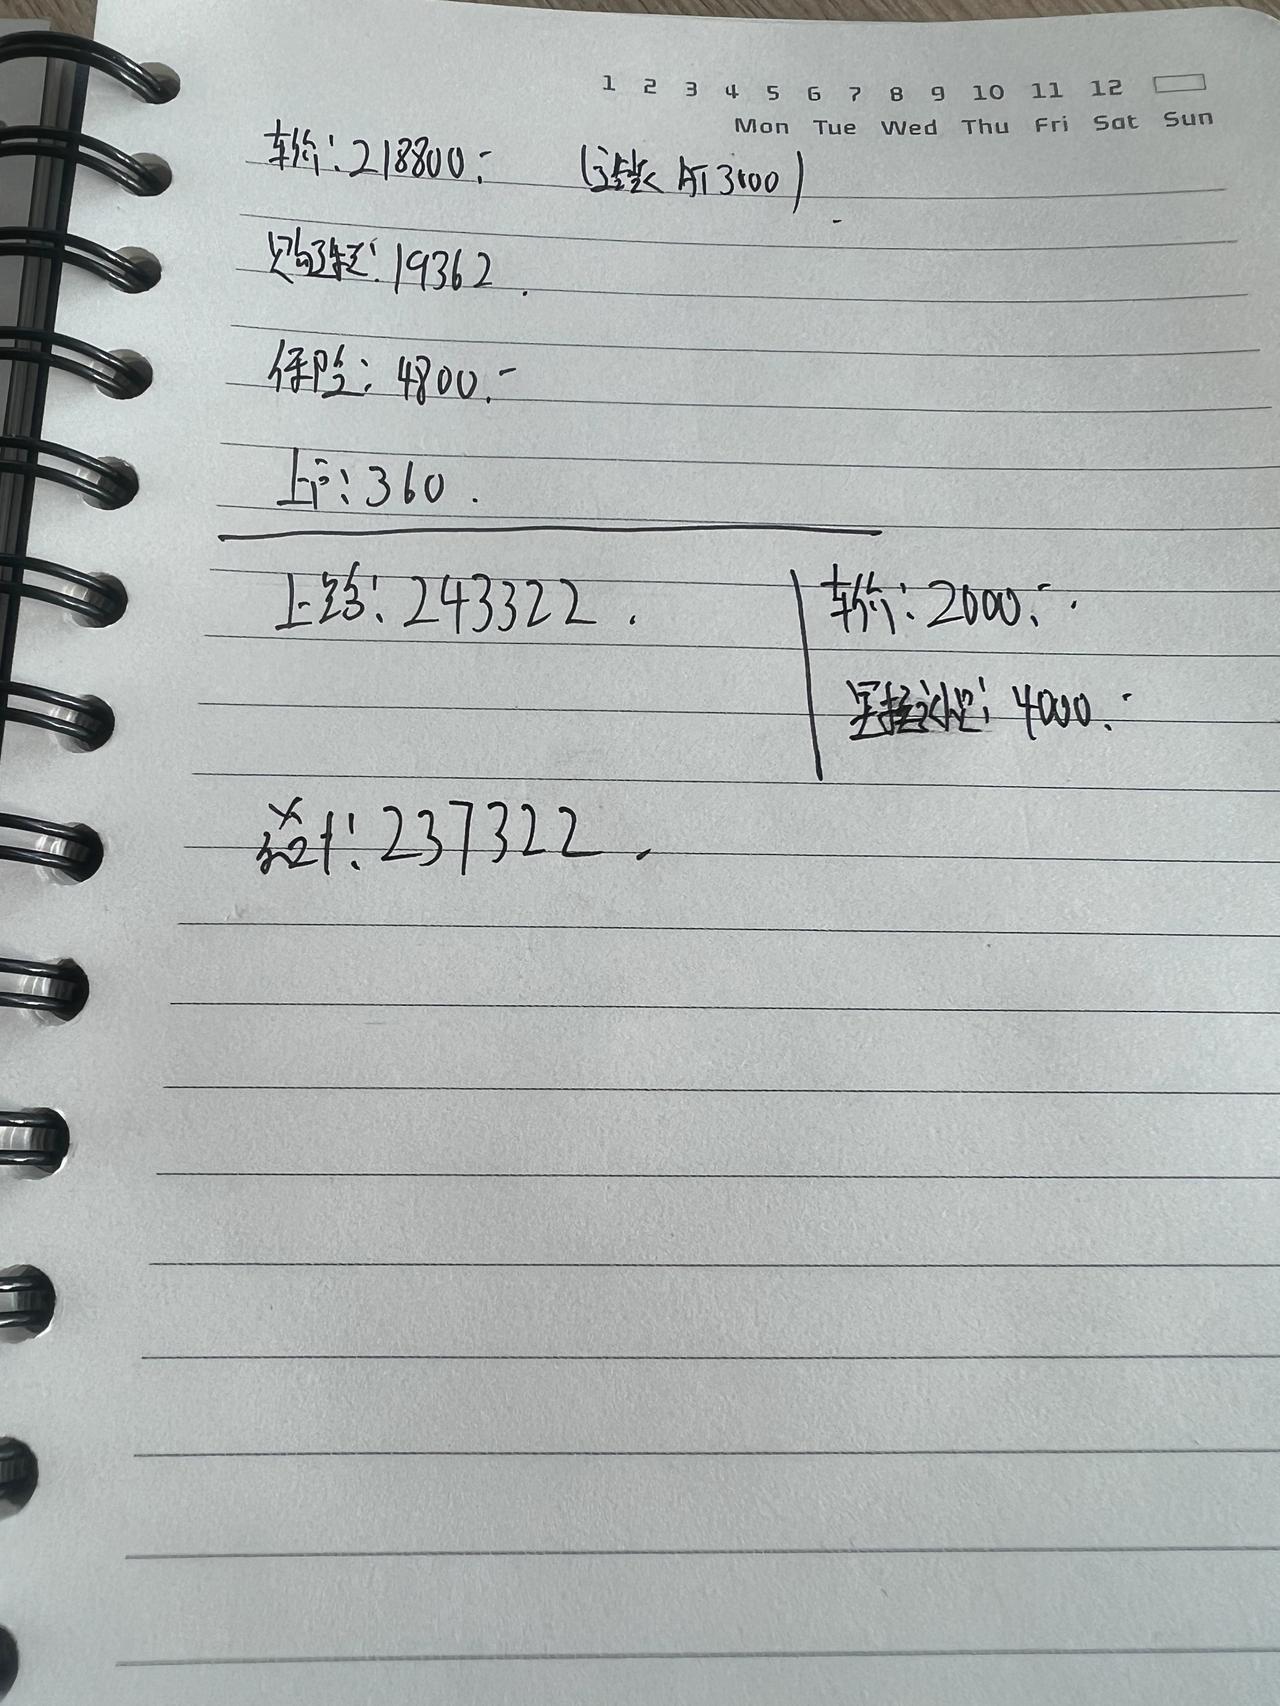 1 2 3 4 5 6 7 8 9 10 11 12
Mon Tue Wed Thu Fri Sat Sun
车价：218800.- (选装 3100)
购置税：19362.
保险：4800.-
上户：360.
上路：243322.
车价：2000.-
4000.-
总计：237322.